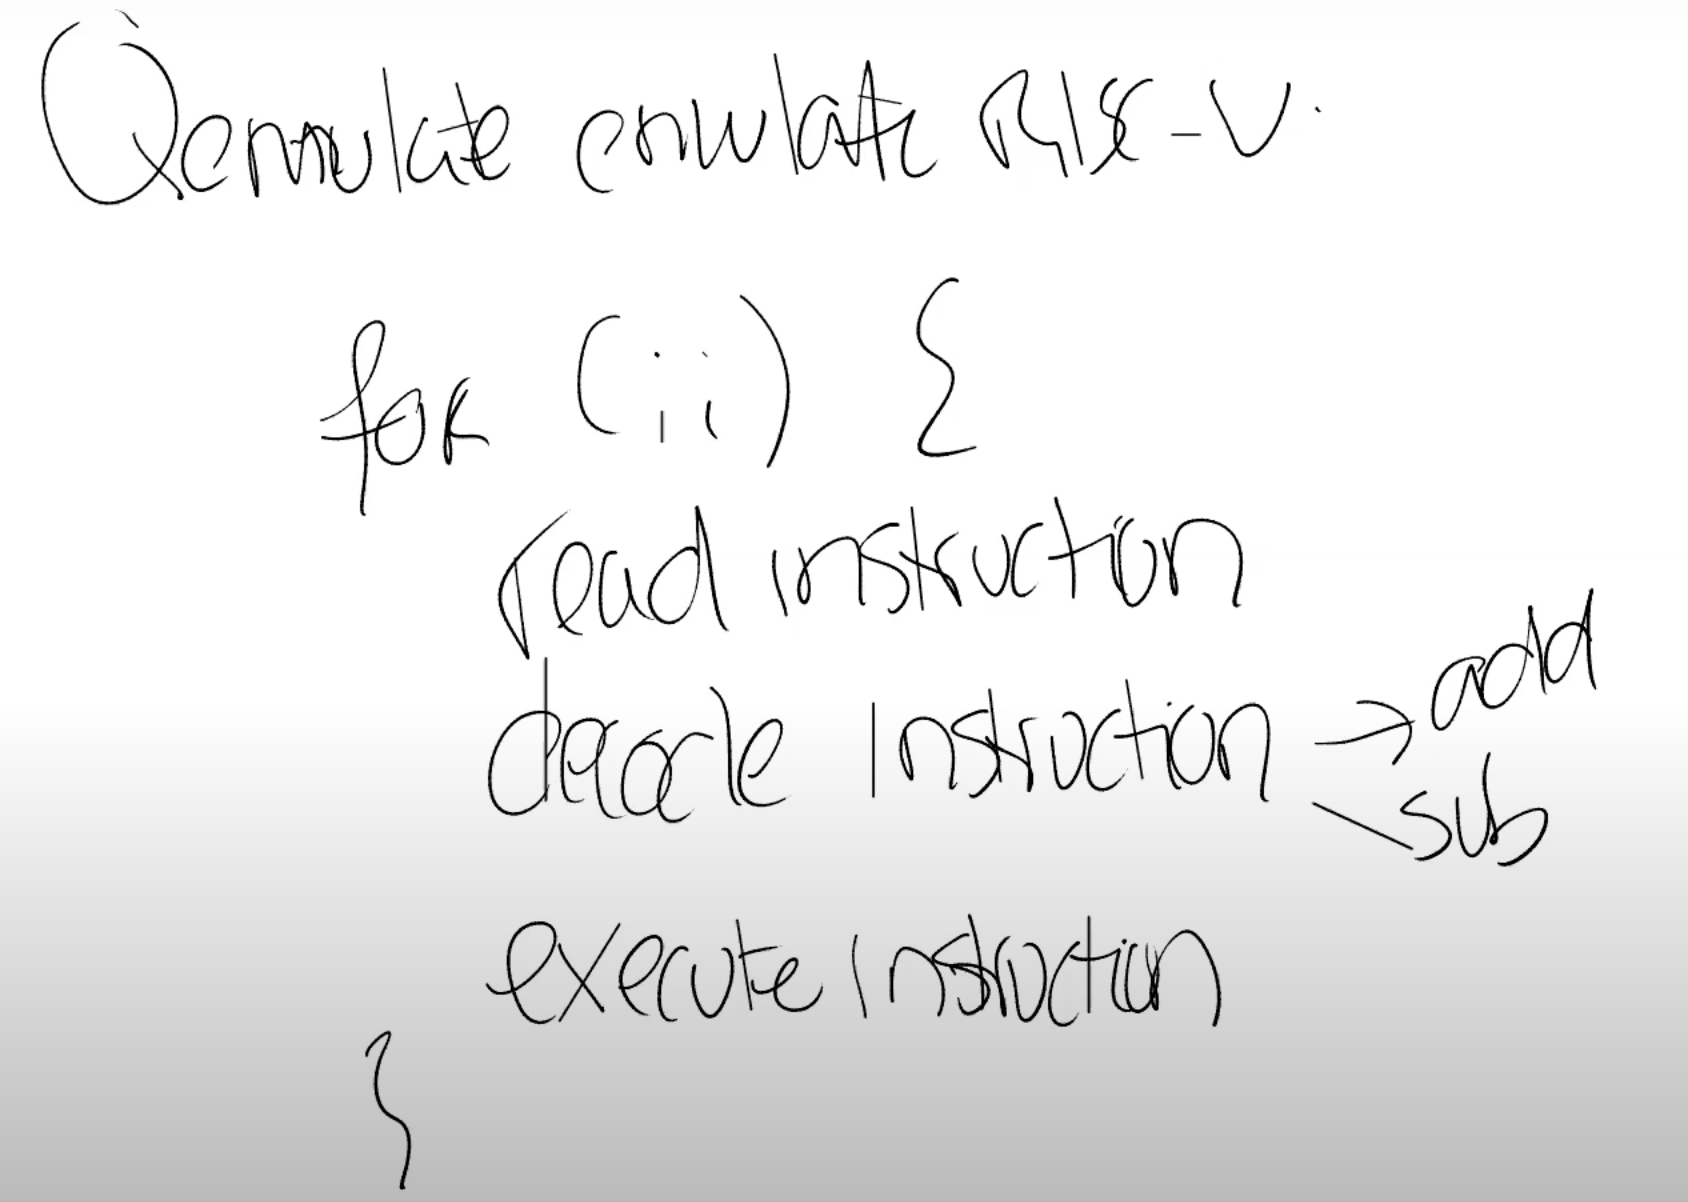 Qemulate emulate RISC-V.
for (;;) {
read instruction
decode instruction → add
sub
execute instruction
}